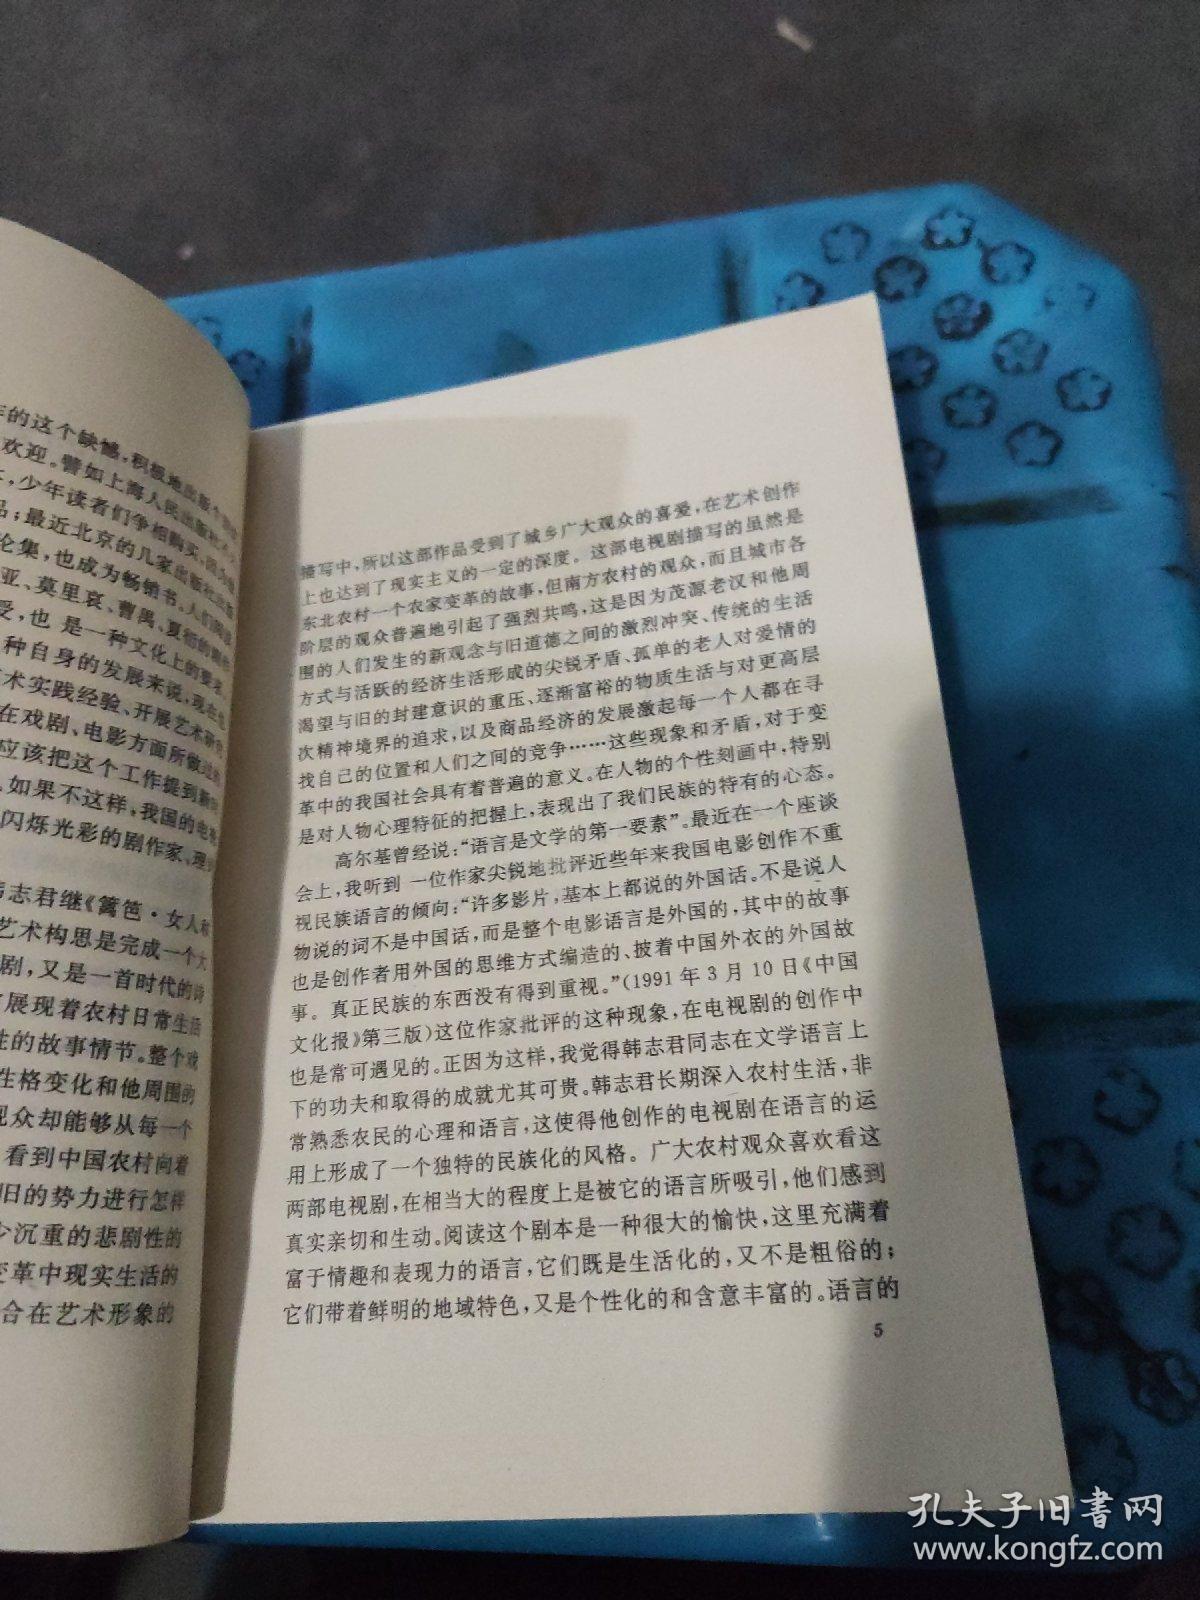 年的这个缺憾，积极地出版
欢迎。譬如上海人民出版社
，少年读者们争相购买，
品；最近北京的几家出版社
论集，也成为畅销书。人们
亚、莫里哀、曹禺、夏衍的
受，也 是一种文化上的要求。
种自身的发展来说，现在
术实践经验、开展艺术研
在戏剧、电影方面所做
应该把这个工作提到新
。如果不这样，我国的电
闪烁光彩的剧作家、理
韩志君继《篱笆·女人和
艺术构思是完成一个大
剧，又是一首时代的诗
展现着农村日常生活
性的故事情节。整个戏
性格变化和他周围的
观众却能够从每一个
看到中国农村向着
旧的势力进行怎样
少沉重的悲剧性的
变革中现实生活的
合在艺术形象的
描写中，所以这部作品受到了城乡广大观众的喜爱，在艺术创作
上也达到了现实主义的一定的深度。这部电视剧描写的虽然是
东北农村一个农家变革的故事，但南方农村的观众，而且城市各
阶层的观众普遍地引起了强烈共鸣，这是因为茂源老汉和他周
围的人们发生的新观念与旧道德之间的激烈冲突、传统的生活
方式与活跃的经济生活形成的尖锐矛盾、孤单的老人对爱情的
渴望与旧的封建意识的重压、逐渐富裕的物质生活与对更高层
次精神境界的追求，以及商品经济的发展激起每一个人都在寻
找自己的位置和人们之间的竞争……这些现象和矛盾，对于变
革中的我国社会具有着普遍的意义。在人物的个性刻画中，特别
是对人物心理特征的把握上，表现出了我们民族的特有的心态。
高尔基曾经说：“语言是文学的第一要素”。最近在一个座谈
会上，我听到 一位作家尖锐地批评近些年来我国电影创作不重
视民族语言的倾向：“许多影片，基本上都说的外国话。不是说人
物说的词不是中国话，而是整个电影语言是外国的，其中的故事
也是创作者用外国的思维方式编造的、披着中国外衣的外国故
事。真正民族的东西没有得到重视。”（1991年3月10日《中国
文化报》第三版）这位作家批评的这种现象，在电视剧的创作中
也是常可遇见的。正因为这样，我觉得韩志君同志在文学语言上
下的功夫和取得的成就尤其可贵。韩志君长期深入农村生活，非
常熟悉农民的心理和语言，这使得他创作的电视剧在语言的运
用上形成了一个独特的民族化的风格。广大农村观众喜欢看这
两部电视剧，在相当大的程度上是被它的语言所吸引，他们感到
真实亲切和生动。阅读这个剧本是一种很大的愉快，这里充满着
富于情趣和表现力的语言，它们既是生活化的，又不是粗俗的；
它们带着鲜明的地域特色，又是个性化的和含意丰富的。语言的
5
孔夫子旧书网
www.kongfz.com